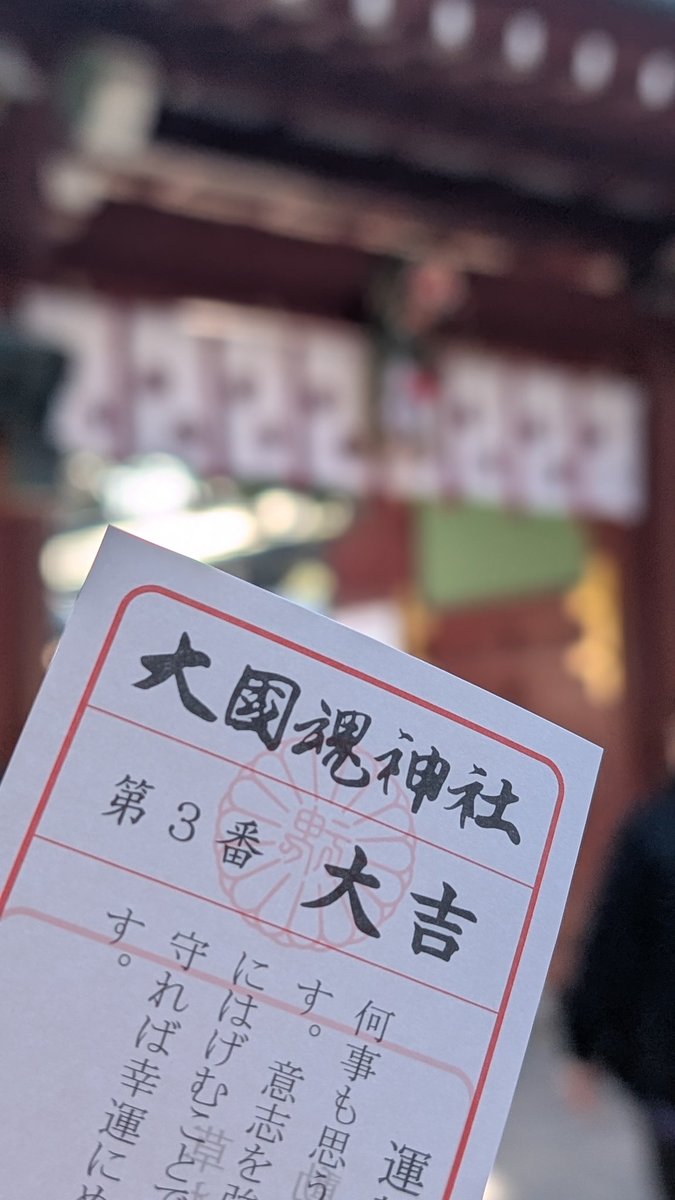 大國魂神社
第3番 大吉
運
何事も思う
す。 意志を強
にはげむことで
守れば幸運にめ
す。